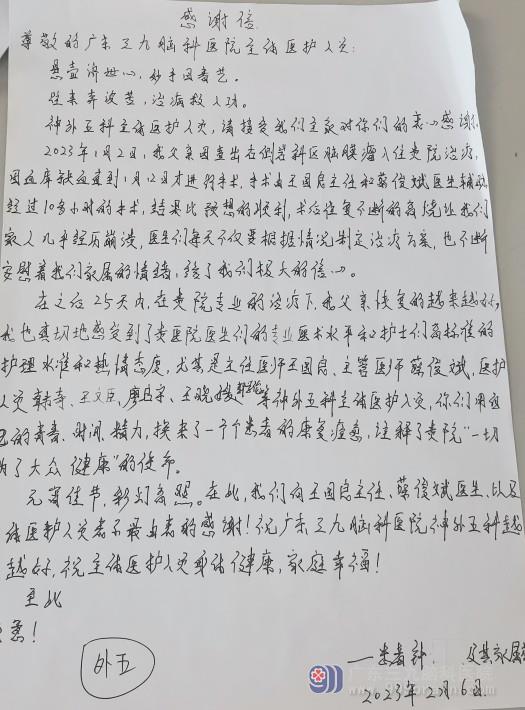 感谢信
尊敬的广东三九脑科医院全体医护人员：
悬壶济世心，妙手回春艺。
往来奔波苦，治病救人功。
神外五科全体医护人员，请接受我们全家对你们的衷心感谢。
2023年1月2日，我父亲因查出右侧岩斜区脑膜瘤入住贵院治疗，
因血库缺血直到1月12日才进行手术，手术由王国良主任和蔡俊斌医生辅助
经过10多小时的手术，结果比预想的顺利，术后恢复不断的高烧让我们
家人几乎经历崩溃，医生们每天不仅要根据情况制定治疗方案，也不断
安慰着我们家属的情绪，给了我们极大的信心。
在之后25天内，在贵院专业的治疗下，我父亲恢复的越来越好，
我也真切地感受到了贵医院医生们的专业医术水平和护士们高标准的
护理水准和热情态度，尤其是主任医师王国良、主管医师蔡俊斌，医护
人员韩寺、王文臣、廖 王晓媛 等神外五科全体医护人员，你们用自
己的青春、时间、精力，换来了一个个患者的康复痊愈，诠释了贵院"一切
为了大众健康"的使命。
元宵佳节，彩灯高照。在此，我们向王国良主任、蔡俊斌医生、以及
体医护人员表示最由衷的感谢！祝广东三九脑科医院神外五科越
越好，祝全体医护人员身体健康，家庭幸福！
至此
意！
外五
一患者 及其家属
2023年2月6日
广东三九脑科医院